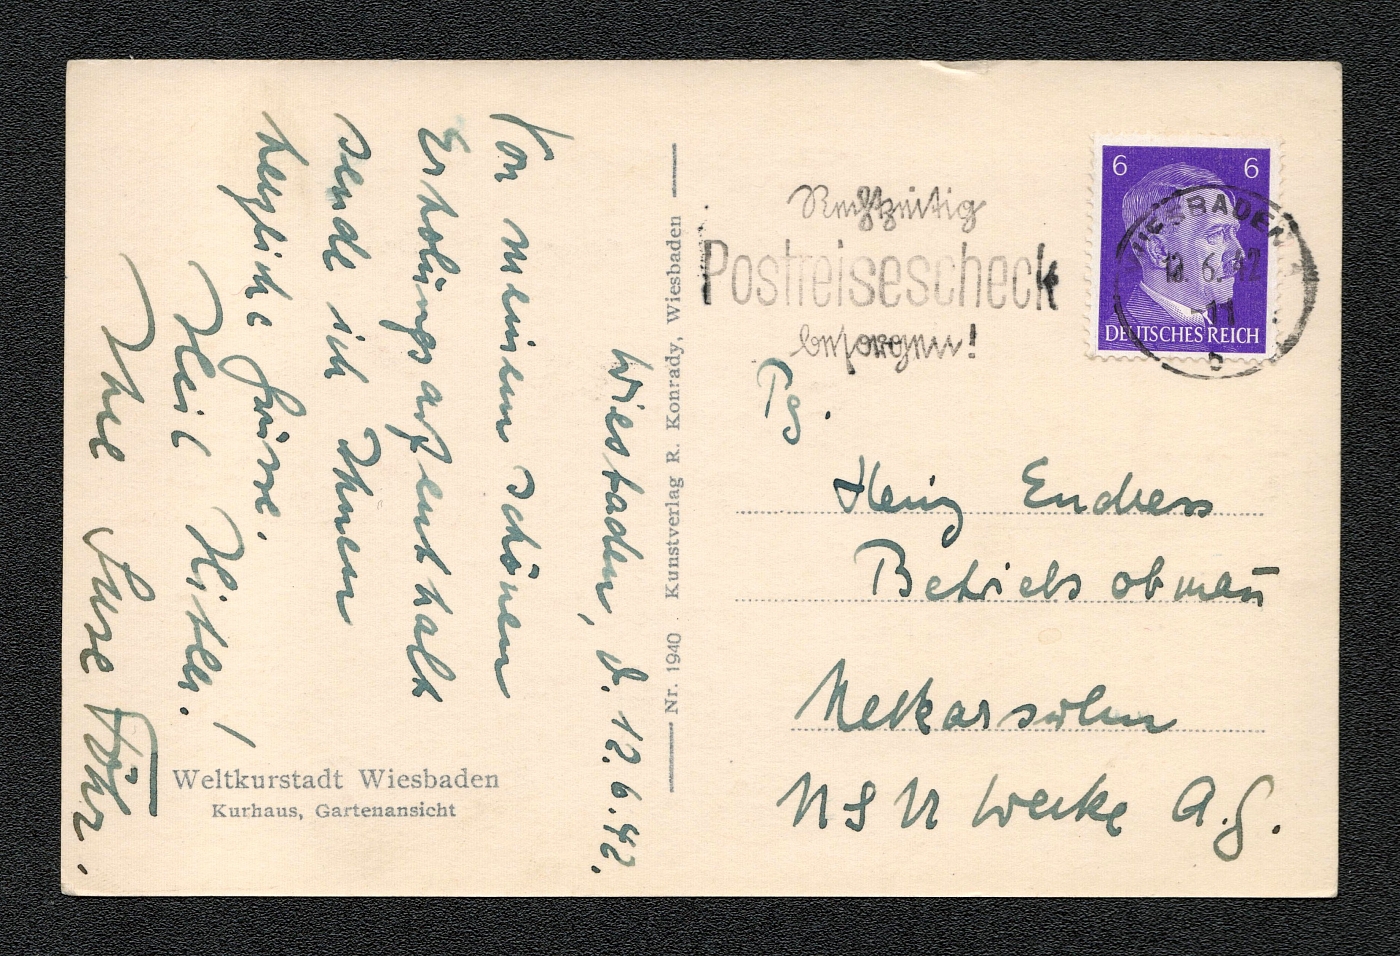 Wiesbaden, d. 12.6.42.
Von meinem schönen
Erholungsaufenthalt
sende ich Ihnen
herzliche Grüsse.
Heil Hitler!
Ihre Luise Föhr.
Weltkurstadt Wiesbaden
Kurhaus, Gartenansicht
Nr. 1940 Kunstverlag R. Konrady, Wiesbaden
Rechtzeitig
Postreisescheck
besorgen!
6 6
DEUTSCHES REICH
WIESBADEN 1
12.6.42
-11
b
Pg.
Heinz Endress
Betriebsobmañ
Neckarsulm
NSU Werke A.G.